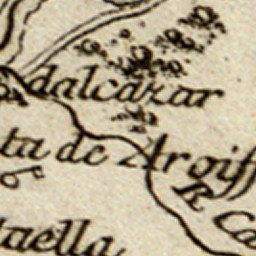 dalcazar
ta de Argiff
R Ca
taella